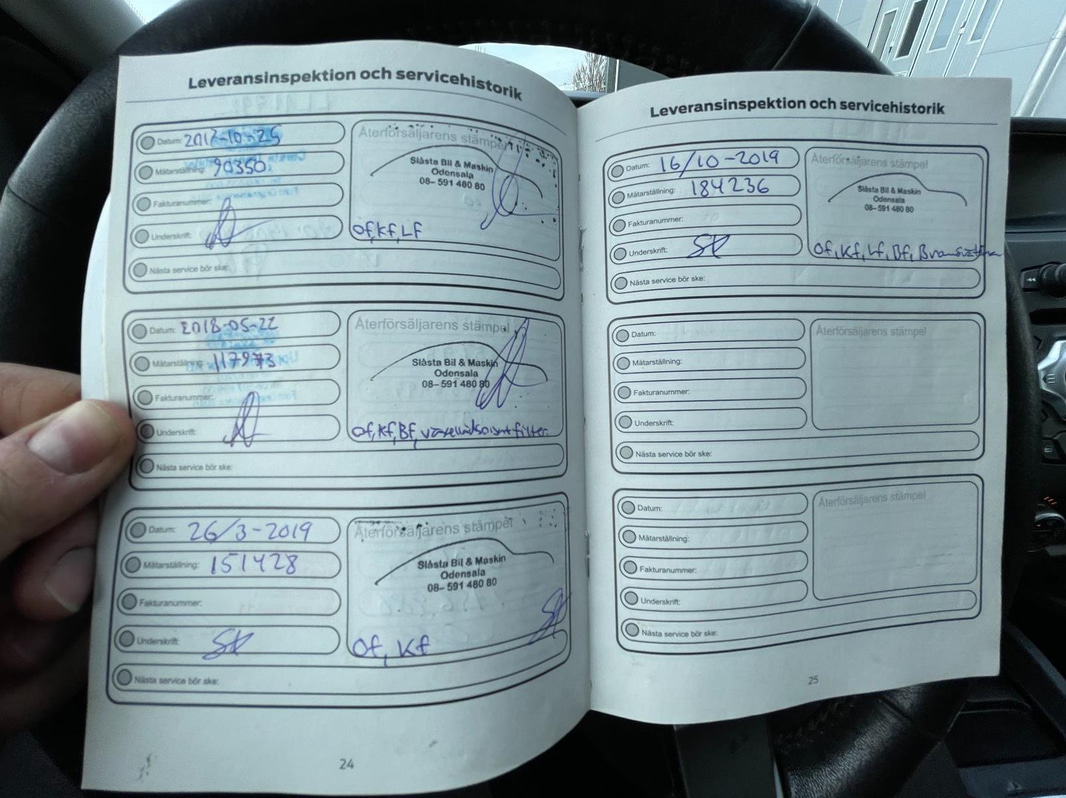 Leveransinspektion och servicehistorik
Datum: 2017-10-25
Mätarställning: 90350
Fakturanummer:
Underskrift:
Nästa service bör ske:
Återförsäljarens stämpel
Slåsta Bil & Maskin
Odensala
08- 591 480 80
Of, Kf, Lf
Datum: 2018-05-22
Mätarställning: 117973
Fakturanummer:
Underskrift:
Nästa service bör ske:
Återförsäljarens stämpel
Slåsta Bil & Maskin
Odensala
08- 591 480 80
Of, Kf, Bf, filter
Datum: 26/3-2019
Mätarställning: 151428
Fakturanummer:
Underskrift:
Nästa service bör ske:
Återförsäljarens stämpel
Slåsta Bil & Maskin
Odensala
08- 591 480 80
Of, Kf
24
Leveransinspektion och servicehistorik
Datum: 16/10-2019
Mätarställning: 184236
Fakturanummer:
Underskrift:
Nästa service bör ske:
Återförsäljarens stämpel
Slåsta Bil & Maskin
Odensala
08- 591 480 80
Of, Kf, Lf, Bf,
Datum:
Mätarställning:
Fakturanummer:
Underskrift:
Nästa service bör ske:
Återförsäljarens stämpel
Datum:
Mätarställning:
Fakturanummer:
Underskrift:
Nästa service bör ske:
Återförsäljarens stämpel
25